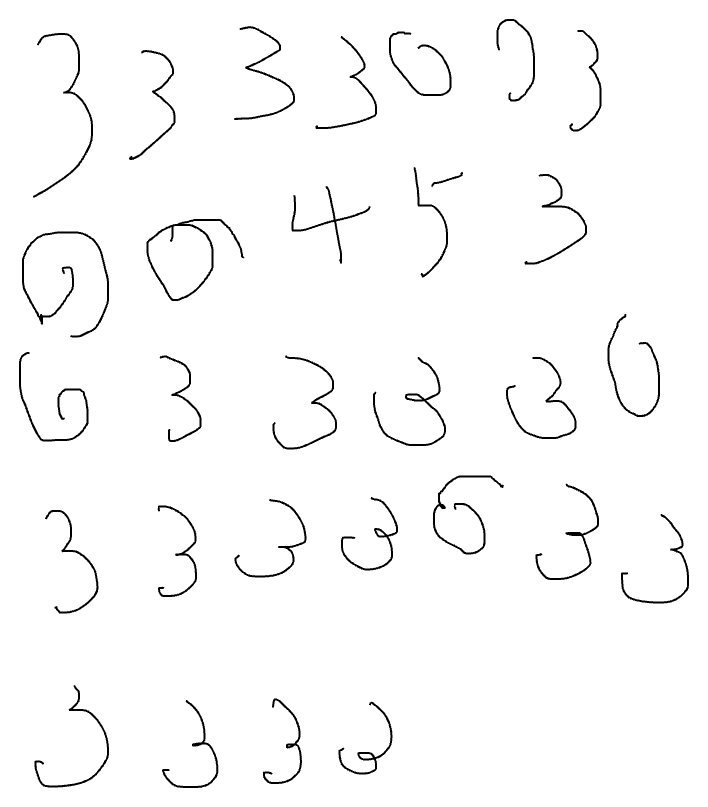 3 3 3 3 0 3
4 5 3
3 3 3 3 0
3 3 3 3 3 3
3 3 3 3